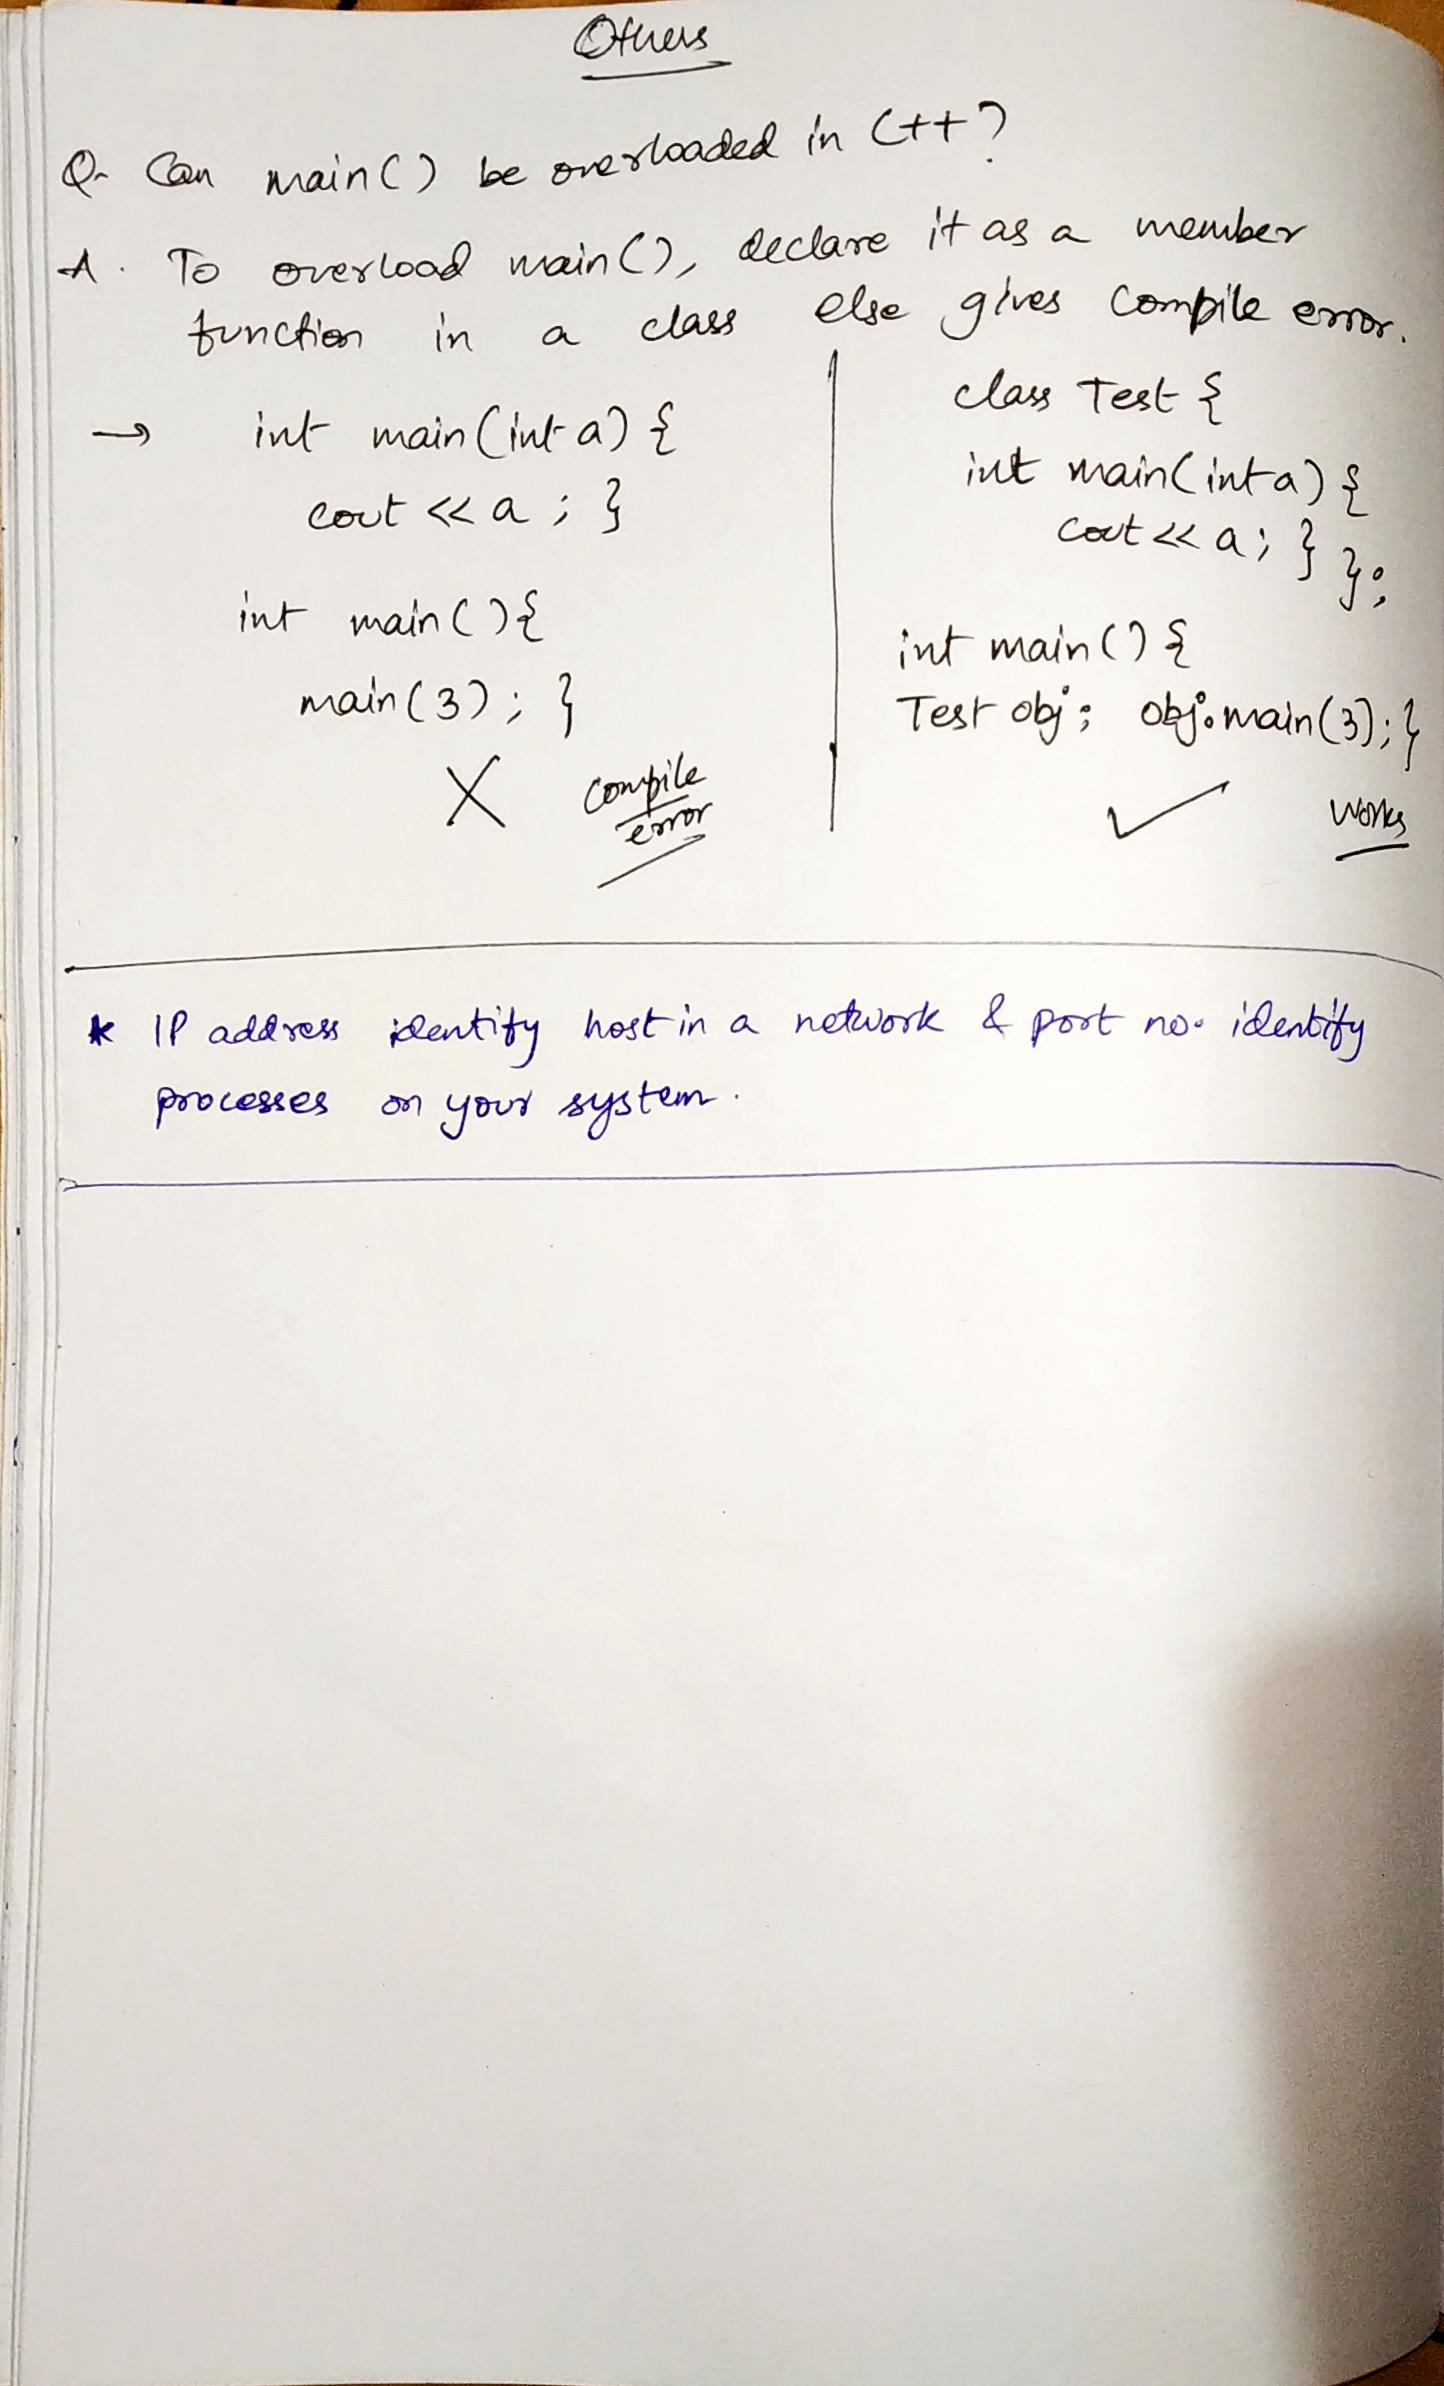 Others
Q- Can main() be overloaded in C++?
A. To overload main(), declare it as a member
function in a class else gives compile error.
→ int main(int a) {
cout << a ; }
int main(){
main(3) ; }
X compile
error
class Test {
int main(int a) {
cout << a; } };
int main() {
Test obj; obj.main(3); }
✓ works
* IP address identify host in a network & port no. identify
processes on your system.